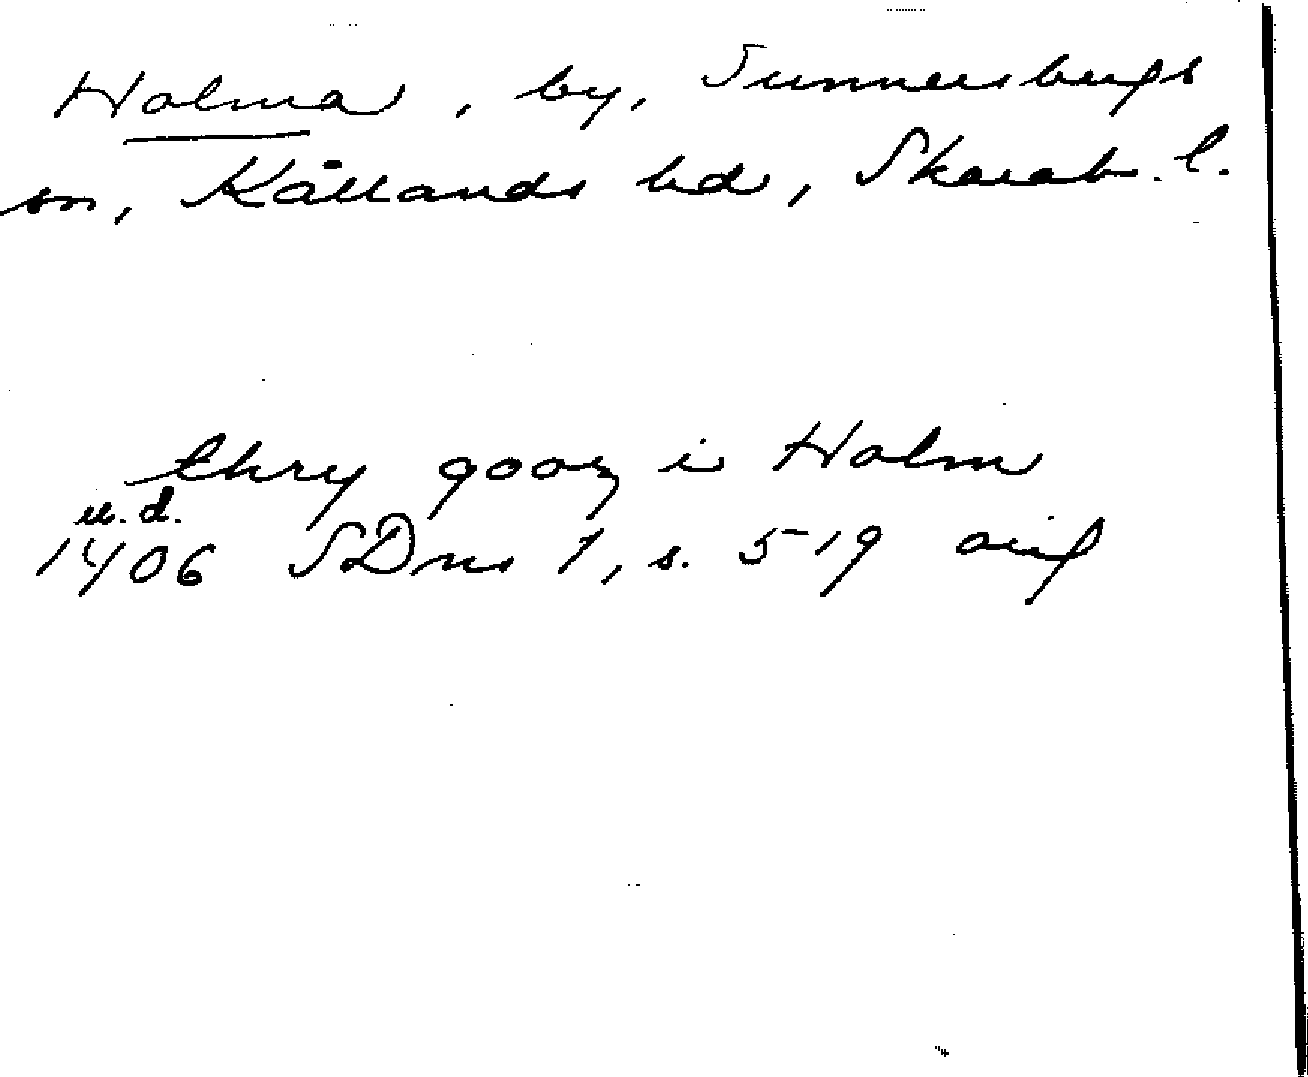 Holma, by, Sunnersbergs
sn, Kållands hd, Skarab. l.
thry gooz i Holm
u. d.
1406 SDns 1, s. 519 avs